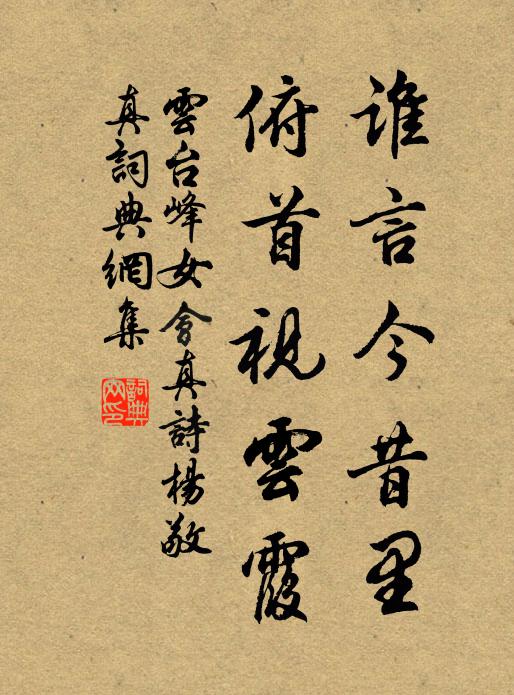 谁言今昔里
俯首視雲霞
雲台峰女會真詩楊敬
真詞典網集
詞典網印